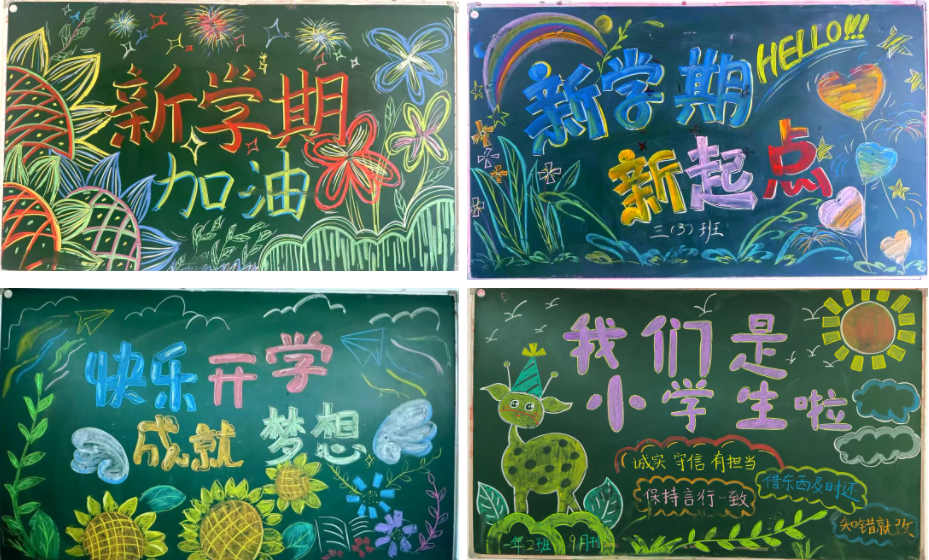 新学期
加油
新学期
HELLO!!!
新起点
三(3)班
快乐开学
成就梦想
我们是
小学生啦
诚实 守信 有担当
保持言行一致
借东西及时还
知错就改
一年2班 9月刊